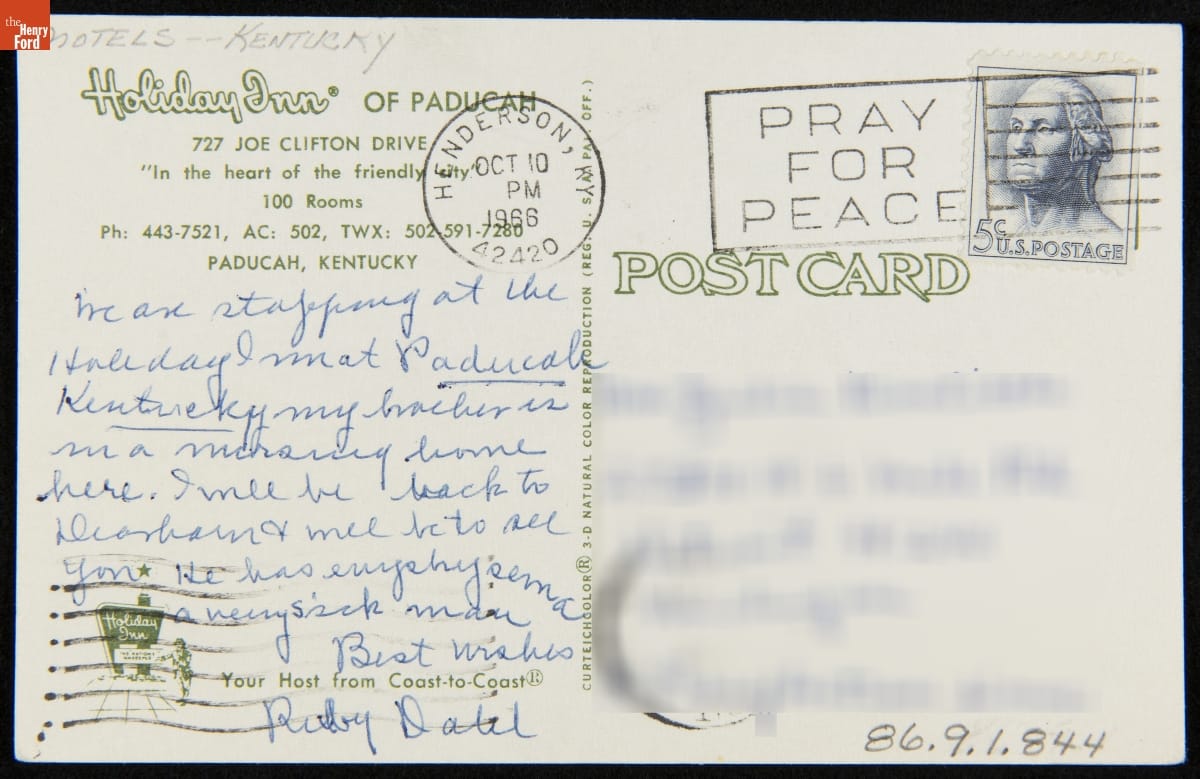 the Henry Ford
MOTELS -- KENTUCKY
Holiday Inn® OF PADUCAH
727 JOE CLIFTON DRIVE
"In the heart of the friendly city"
100 Rooms
Ph: 443-7521, AC: 502, TWX: 502-591-7280
PADUCAH, KENTUCKY
We are stopping at the
Holiday Inn at Paducah
Kentucky my brother is
in a nursing home
here. I will be back to
Dearborn & will be to see
you. He has emphysema
a very sick man
Best Wishes
Ruby Dahl
Holiday Inn
Your Host from Coast-to-Coast®
CURTEICHCOLOR® 3-D NATURAL COLOR REPRODUCTION (REG. U. S. PAT. OFF.)
HENDERSON, KY
OCT 10
PM
1966
42420
PRAY
FOR
PEACE
5c U.S.POSTAGE
POST CARD
86.9.1.844